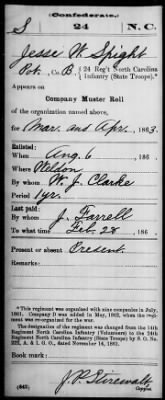 (Confederate.)
S 24 N.C.
Jesse W. Spight
Pvt., Co. B, 24 Reg't North Carolina
Infantry (State Troops).*
Appears on
Company Muster Roll
of the organization named above,
for Mar. and Apr., 1863.
Enlisted:
When Aug. 6, 186
Where Weldon
By whom W. J. Clarke
Period 1yr.
Last paid:
By whom J. Farrell
To what time Feb. 28, 186
Present or absent Present.
Remarks:
*This regiment was organized with nine companies in July,
1861. Company D was added in May, 1862, when the regi-
ment was re-organized.
The designation of the regiment was changed from the 14th
Regiment North Carolina Infantry (Volunteers) to the 24th
Regiment North Carolina Infantry (State Troops) by S. O. No.
222, A. & I. G. O., dated November 14, 1861.
Book mark:
J. P. Stirewalt
(642) Copyist.